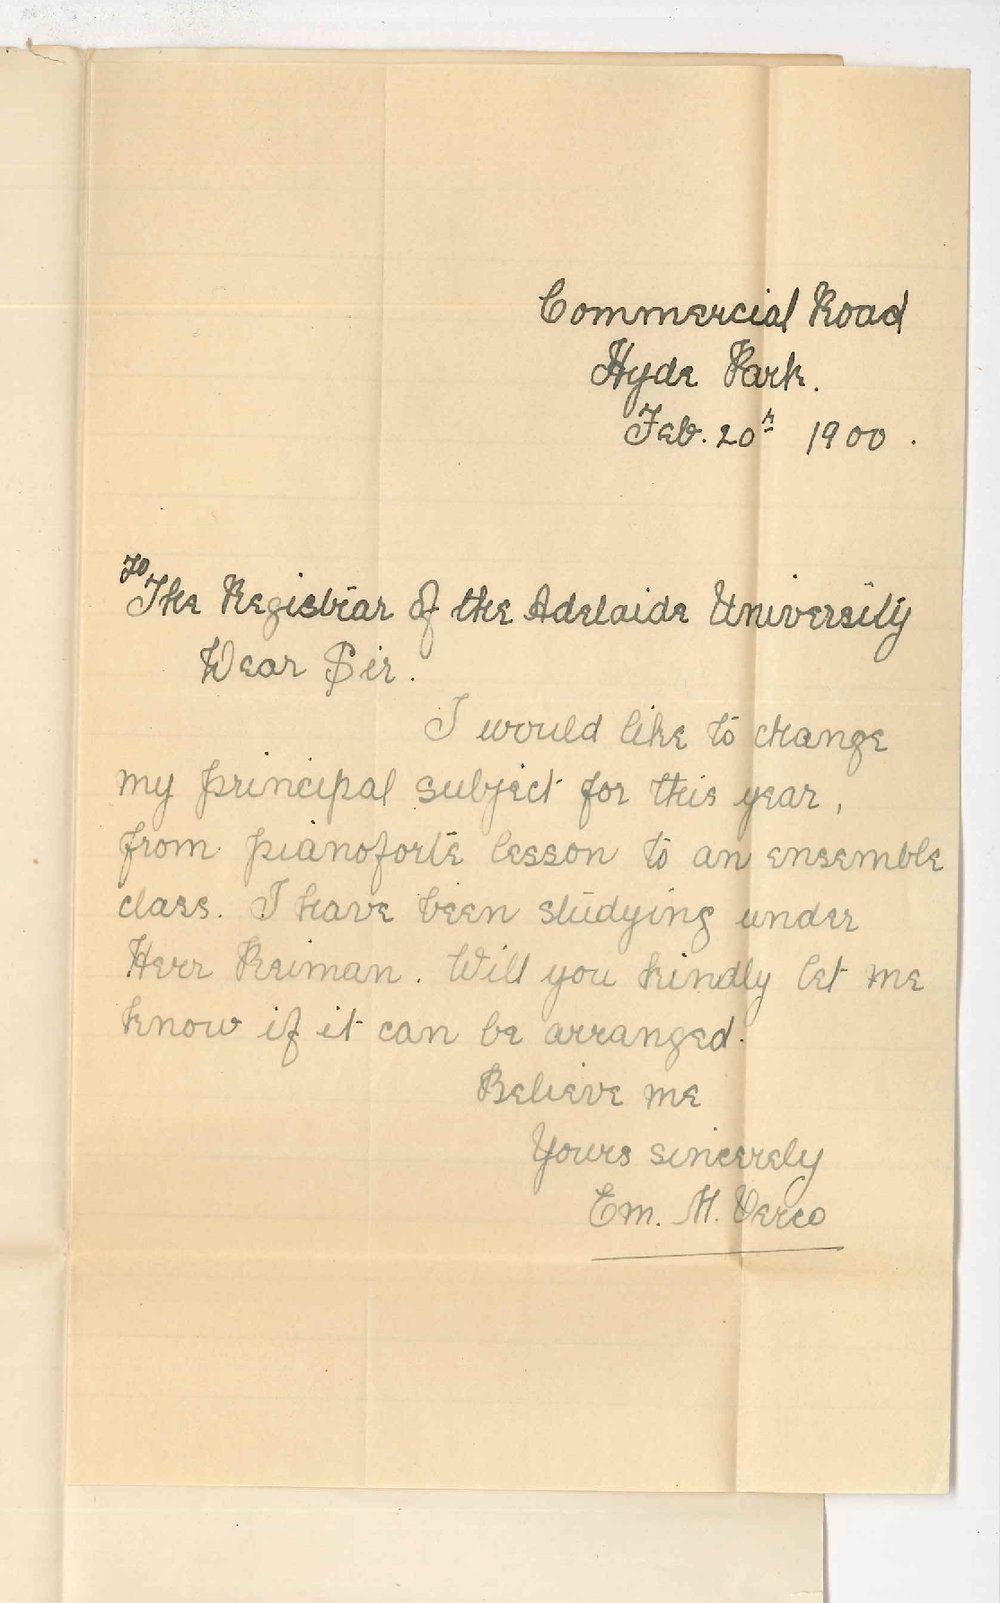 Commercial Road
Hyde Park.
Feb. 20th 1900.
To
The Registrar of the Adelaide University
Dear Sir.
I would like to change
my principal subject for this year,
from pianoforte lesson to an ensemble
class. I have been studying under
Herr Reiman. Will you kindly let me
know if it can be arranged.
Believe me
Yours sincerely
Em. H. Verco